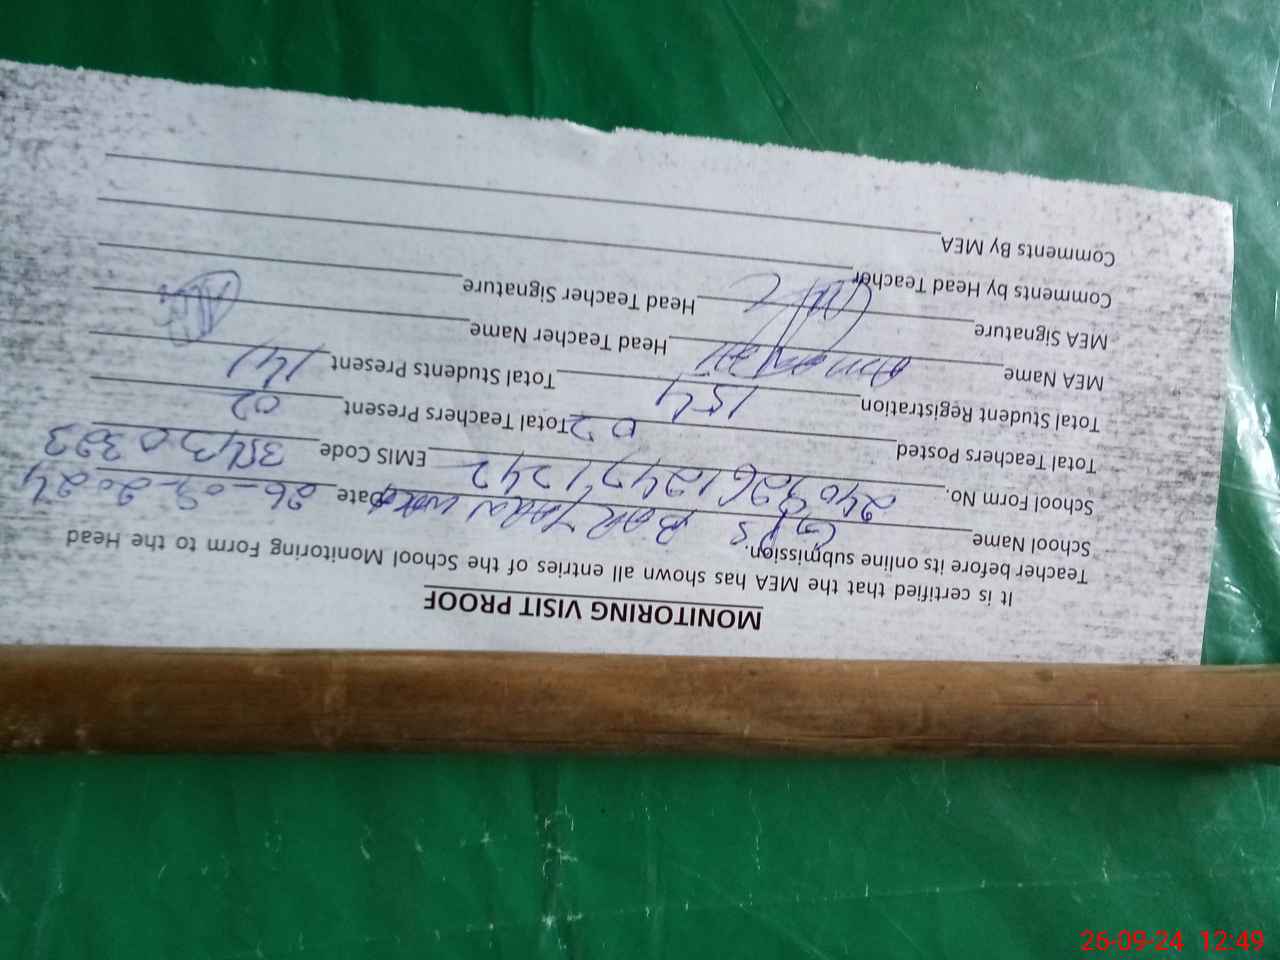 MONITORING VISIT PROOF
It is certified that the MEA has shown all entries of the School Monitoring Form to the Head
Teacher before its online submission.
School Name GPS Date 26-09-2024
School Form No. EMIS Code
Total Teachers Posted 02 Total Teachers Present 02
Total Student Registration 154 Total Students Present 141
MEA Name Head Teacher Name
MEA Signature Head Teacher Signature
Comments by Head Teacher
Comments By MEA
26-09-24 12:49